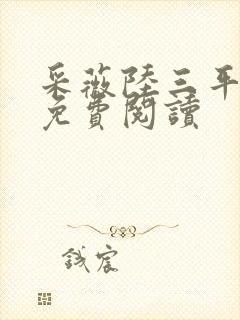 采薇陸三平
免費閱讀
錢宸